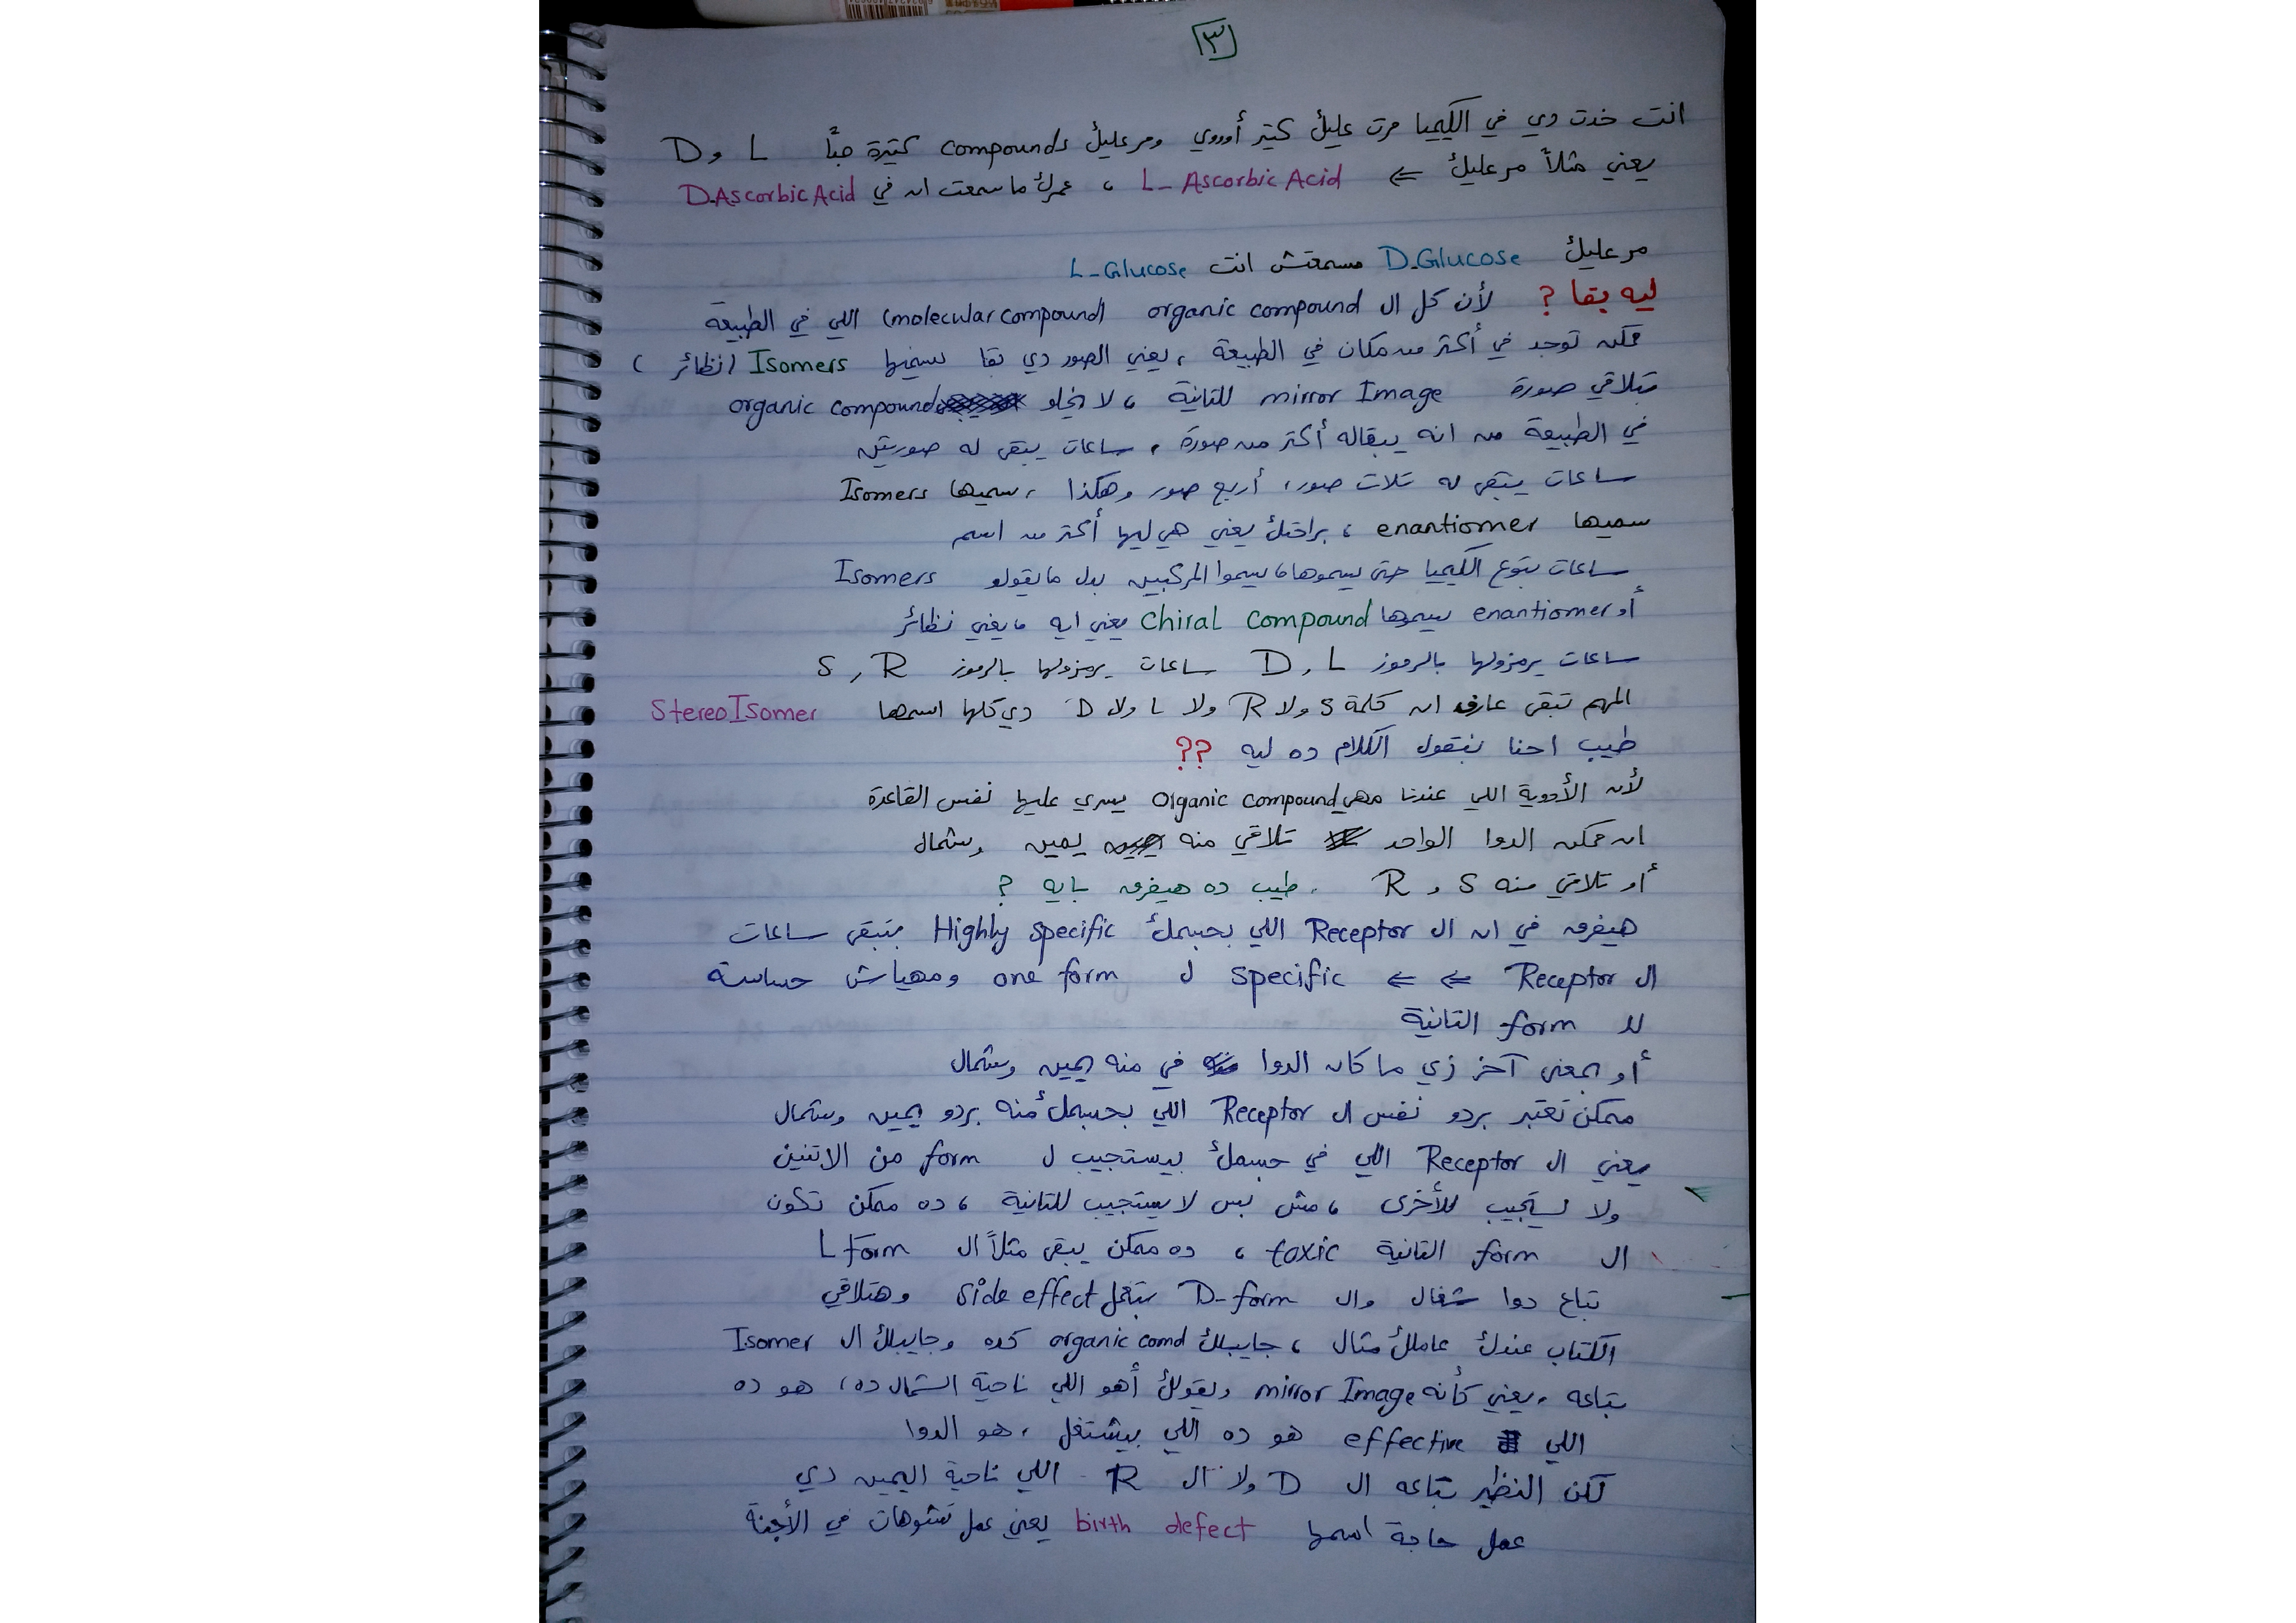 ٣
انت خدت دي في الكيميا مرت عليك كتير أوووي ومر عليك compounds كتيرة جداً L و D
يعني مثلاً مر عليك ⇐ L- Ascorbic Acid ، عمرك ما سمعت ان في D.Ascorbic Acid
مر عليك D.Glucose مسمعتش انت L-Glucose
ليه بقا ? لأن كل ال organic compound (molecular compound) اللي في الطبيعة
ممكن توجد في أكتر من مكان في الطبيعة ، يعني الصور دي بقا نسميها Isomers (نظائر)
بتلاقي صورة mirror Image للتانية ، لا يخلو organic compound
في الطبيعة من انه يبقاله أكتر من صورة ، ساعات يبقى له صورتين
ساعات يبقى له تلات صور، أربع صور وهكذا ، سميها Isomers
سميها enantiomer ، براحتك يعني هي ليها أكتر من اسم
ساعات بتوع الكيميا حتى يسموها ، يسموا المركبين بدل ما يقولو Isomers
أو enantiomer يسموها Chiral Compound يعني ايه ، يعني نظائر
ساعات يرمزولها بالرموز D, L ساعات يرمزولها بالرموز S, R
المهم تبقى عارف ان كلمة S ولا R ولا L ولا D دي كلها اسمها StereoIsomer
طيب احنا بنقول الكلام ده ليه ??
لأن الأدوية اللي عندنا مهي Organic compound يسري عليها نفس القاعدة
ان ممكن الدوا الواحد تلاقي منه يمين وشمال
أو تلاقي منه S و R . طيب ده هيفرق بايه ?
هيفرق في ان ال Receptor اللي بجسمك Highly specific بتبقى ساعات
ال Receptor ⇐ ⇐ specific ل one form ومهياش حساسة
لل form التانية
أو بمعنى آخر زي ما كان الدوا في منه يمين وشمال
ممكن تعتبر بردو نفس ال Receptor اللي بجسمك منه بردو يمين وشمال
يعني ال Receptor اللي في جسمك بيستجيب ل form من الاتنين
ولا يستجيب للأخرى ، مش بس لا يستجيب للتانية ، ده ممكن تكون
ال form التانية toxic ، ده ممكن يبقى مثلاً ال L Form
بتاع دوا شغال وال D-form بتعمل side effect وهتلاقي
الكتاب عندك عاملك مثال ، جايبلك organic comd كده وجايبلك ال Isomer
بتاعه ، يعني كأنه mirror Image ويقولك أهو اللي ناحية الشمال ده، هو ده
اللي effective هو ده اللي بيشتغل ، هو الدوا
لكن النظير بتاعه ال D ولا ال R اللي ناحية اليمين دي
عمل حاجة اسمها birth defect يعني عمل تشوهات في الأجنة